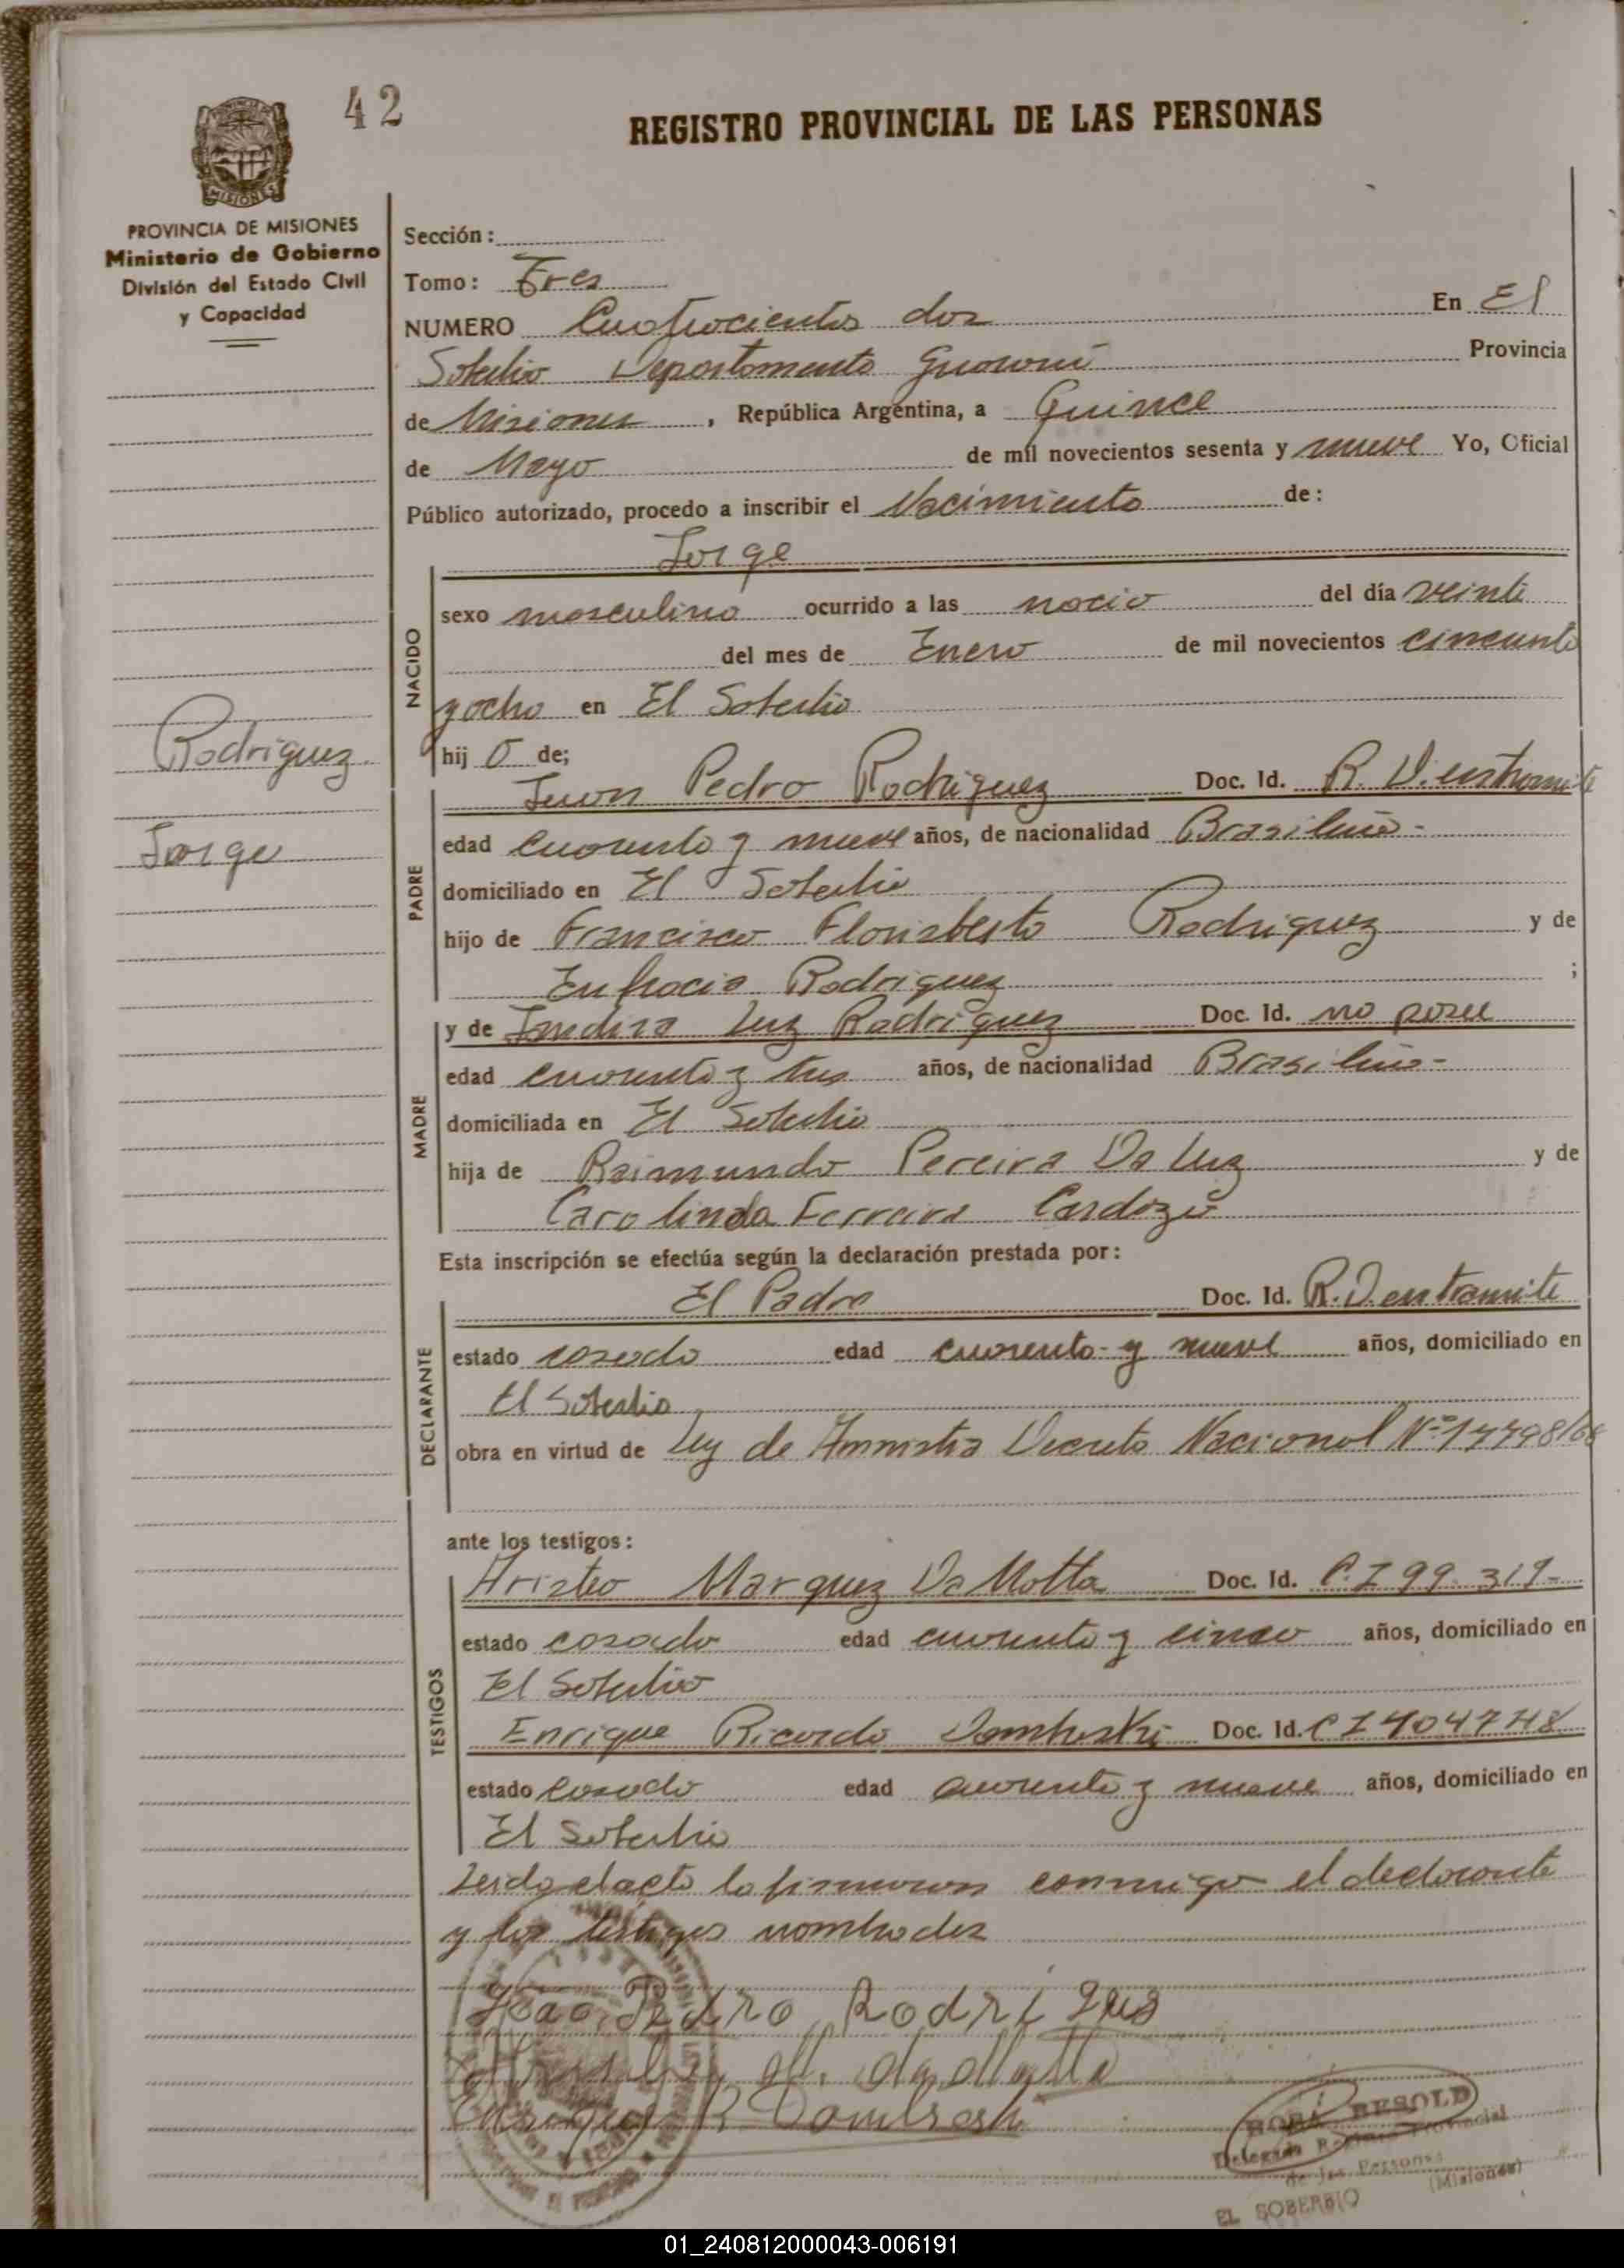 42
REGISTRO PROVINCIAL DE LAS PERSONAS
MISIONES
PROVINCIA DE MISIONES
Ministerio de Gobierno
División del Estado Civil
y Capacidad
Sección:
Tomo: Tres
NUMERO Cuatrocientos dos En El
Soberbio Departamento Guaraní Provincia
de Misiones, República Argentina, a Quince
de Mayo de mil novecientos sesenta y nueve Yo, Oficial
Público autorizado, procedo a inscribir el Nacimiento de:
Jorge
NACIDO
sexo masculino ocurrido a las nació del día veinte
del mes de Enero de mil novecientos cincuenta
y ocho en El Soberbio
hijo de;
Rodriguez
Jorge
PADRE
Juan Pedro Rodriguez Doc. Id. R. D. en tramite
edad cuarenta y nueve años, de nacionalidad Brasileña-
domiciliado en El Soberbio
hijo de Francisco Florisberto Rodriguez y de
Eufracia Rodriguez;
MADRE
y de Luz Rodriguez Doc. Id. no posee
edad cuarenta y tres años, de nacionalidad Brasileña-
domiciliada en El Soberbio
hija de Raimundo Pereira Da Luz y de
Carolinda Ferreira Cardozo
Esta inscripción se efectúa según la declaración prestada por:
DECLARANTE
El Padre Doc. Id. R.D. en tramite
estado casado edad cuarenta y nueve años, domiciliado en
El Soberbio
obra en virtud de Ley de Amnistia Decreto Nacional Nº 17798/68
ante los testigos:
TESTIGOS
Aristeo Marquez Da Motta Doc. Id. C.I 99.319-
estado casado edad cuarenta y cinco años, domiciliado en
El Soberbio
Enrique Ricardo Dombroski Doc. Id. C I 404748
estado casado edad cuarenta y nueve años, domiciliado en
El Soberbio
Leida el acta la firmaron conmigo el declarante
y los testigos nombrados
Joao Pedro Rodriguez
M. da Motta
Enrique R Dombroski
BESOLD
Delegada Registro Provincial
de las Personas
EL SOBERBIO (Misiones)
01_240812000043-006191